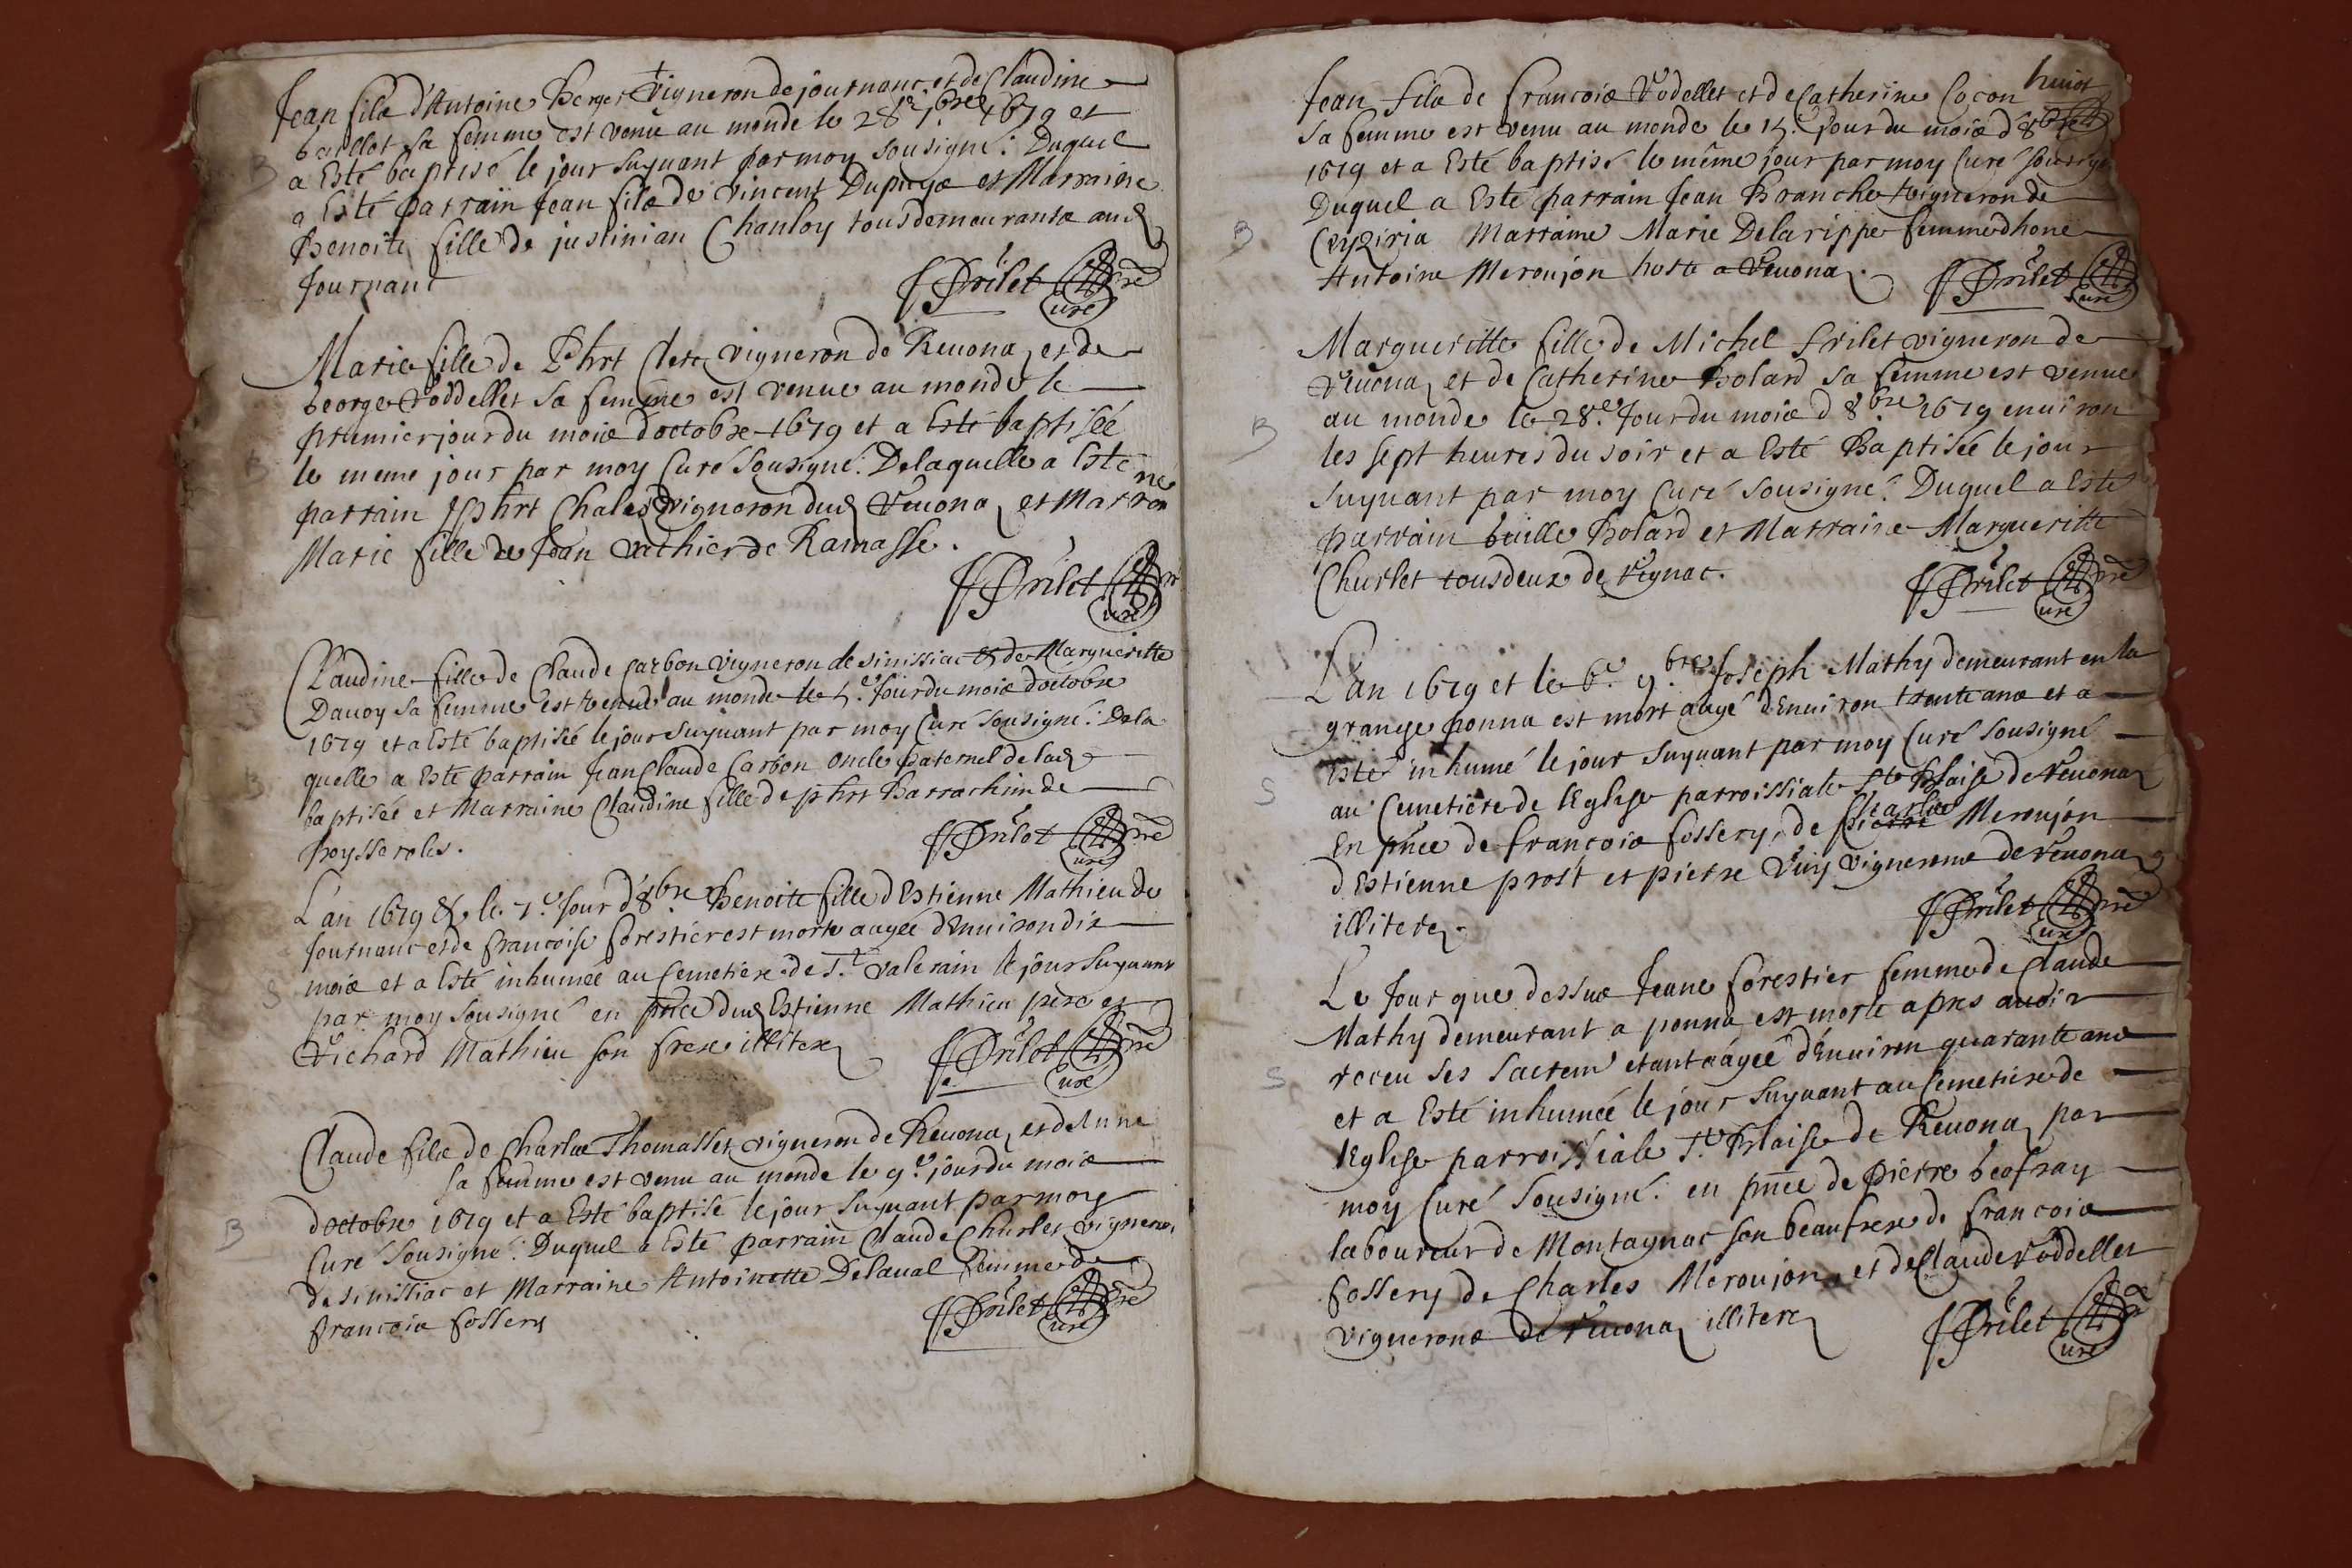 Jean fils d'Antoine Berger vigneron de journanc et de Claudine
baillot sa femme est venu au monde le 28e 7.bre 1679 et
B
a Esté baptisé le jour suyuant par moy sousigné. Duquel
a Esté parrain Jean fils de vincent Dupuys et Marraine
Benoite fille de justinian Chanloy tous demeurants aud
Journanc
Frilet pre
Curé
Marie fille de Phrt Clerc vigneron de Reuona et de
George Voddellet sa femme est venue au monde le
premier jour du mois doctobre 1679 et a Esté baptisée
B
le meme jour par moy Curé sousigné. Delaquelle a Esté
parrain Phrt Chales vigneron dud Reuona et Marraine
Marie fille de Jean vathier de Ramasse.
Frilet pre
Curé
Claudine fille de Claude Carbon vigneron de sinissiac et de Margueritte
Dauoy sa femme est venue au monde le 5.e Jour du mois doctobre
1679 et a Esté baptisée le jour suyuant par moy Curé sousigné. Dela
B
quelle a Esté parrain Jean Claude Carbon oncle paternel de lad
baptisée et Marraine Claudine fille de phrt Barrachin de
poysseroles.
Frilet pre
Curé
L'an 1679 & le 7.e Jour d'8bre Benoite fille d'Estienne Mathieu de
Journanc et de francoise forestier est morte aagée d'Enuiron dix
mois et a Esté inhumée au Cemetiere de St valerain le jour suyuant
S
par moy sousigné en pnce dud Estienne Mathieu pere et
Richard Mathieu son frere illiter
Frilet pre
Curé
Claude fils de Charles Thomasset vigneron de Reuona et de Anne
sa femme est venu au monde le 9.e jour du mois
doctobre 1679 et a Esté baptisé le jour suyuant par moy
B
Curé sousigné. Duquel a Esté parrain Claude Churlet vigneron
de sinissiac et Marraine Antoinette Delaual femme de
francois fossery
Frilet pre
Curé
huict
Jean fils de francois Vodellet et de Catherine Cocon
sa femme est venu au monde le 15.e Jour du mois d'8bre
1679 et a Esté baptisé le même jour par moy Curé sousigné
Duquel a Esté parrain Jean Branche vigneron de
B
Ceyziria Marraine Marie Delarippe femme d'hone
Antoine Meroujon hoste a Reuona.
Frilet
Curé
Margueritte fille de Michel frilet vigneron de
Reuona et de Catherine Bolard sa femme est venue
au monde le 28.e Jour du mois d 8.bre 1679 enuiron
B
les sept heures du soir et a Esté Baptisée le jour
suyuant par moy Curé sousigné. Duquel a Esté
parrain Guille Bolard et Marraine Margueritte
Churlet tous deux de rignac.
Frilet pre
Curé
L'an 1679 et le 6.e 9.bre Joseph Mathy demeurant en la
grange ponna est mort aagé d'Enuiron trente ans et a
Esté inhumé le jour suyuant par moy Curé sousigné
S
au Cemetiere de l'Eglise parroissiale St Blaise de Reuona
En pnce de francois fossery, de Charles Meroujon
d'Estienne prost et pierre Vuy vignerons de Reuona
illiterez.
Frilet pre
Curé
Le Jour que dessus Jeane forestier femme de Claude
Mathy demeurant a ponna est morte apres auoir
receu ses sacrem etant aagée d'Enuiron quarante ans
S
et a Esté inhumée le jour suyuant au Cemetiere de
l'Eglise parroissiale St Blaise de Reuona par
moy Curé sousigné. en pnce de pierre Geofray
laboureur de Montagnac son beaufrere de francois
fossery de Charles Meroujon et de Claude Voddellet
vignerons de Reuona illiter
Frilet
Curé